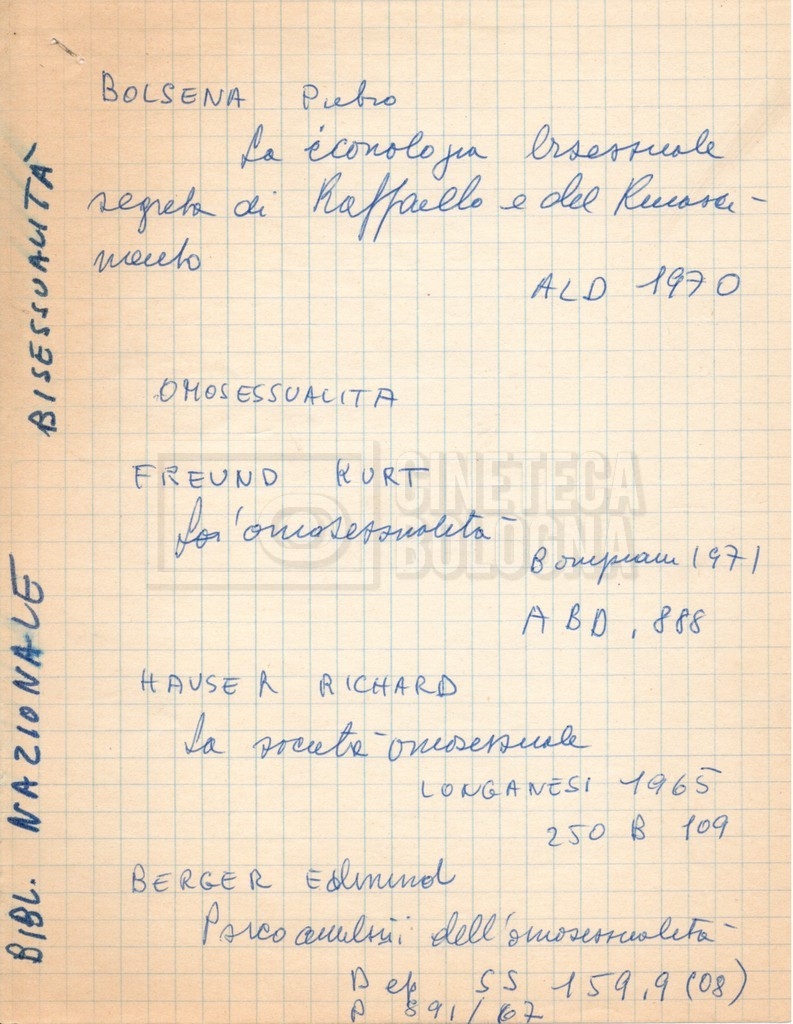 BOLSENA Pietro
La iconologia bisessuale
segreta di Raffaello e del Rinasci-
mento
ALD 1970
OMOSESSUALITA
FREUND KURT
L'omosessualità
Bompiani 1971
ABD, 888
HAUSER RICHARD
La società omosessuale
LONGANESI 1965
250 B 109
BERGER Edmund
Psicoanalisi dell'omosessualità
SS 159,9 (08)
891/67
BIBL. NAZIONALE BISESSUALITÀ
CINETECA
BOLOGNA